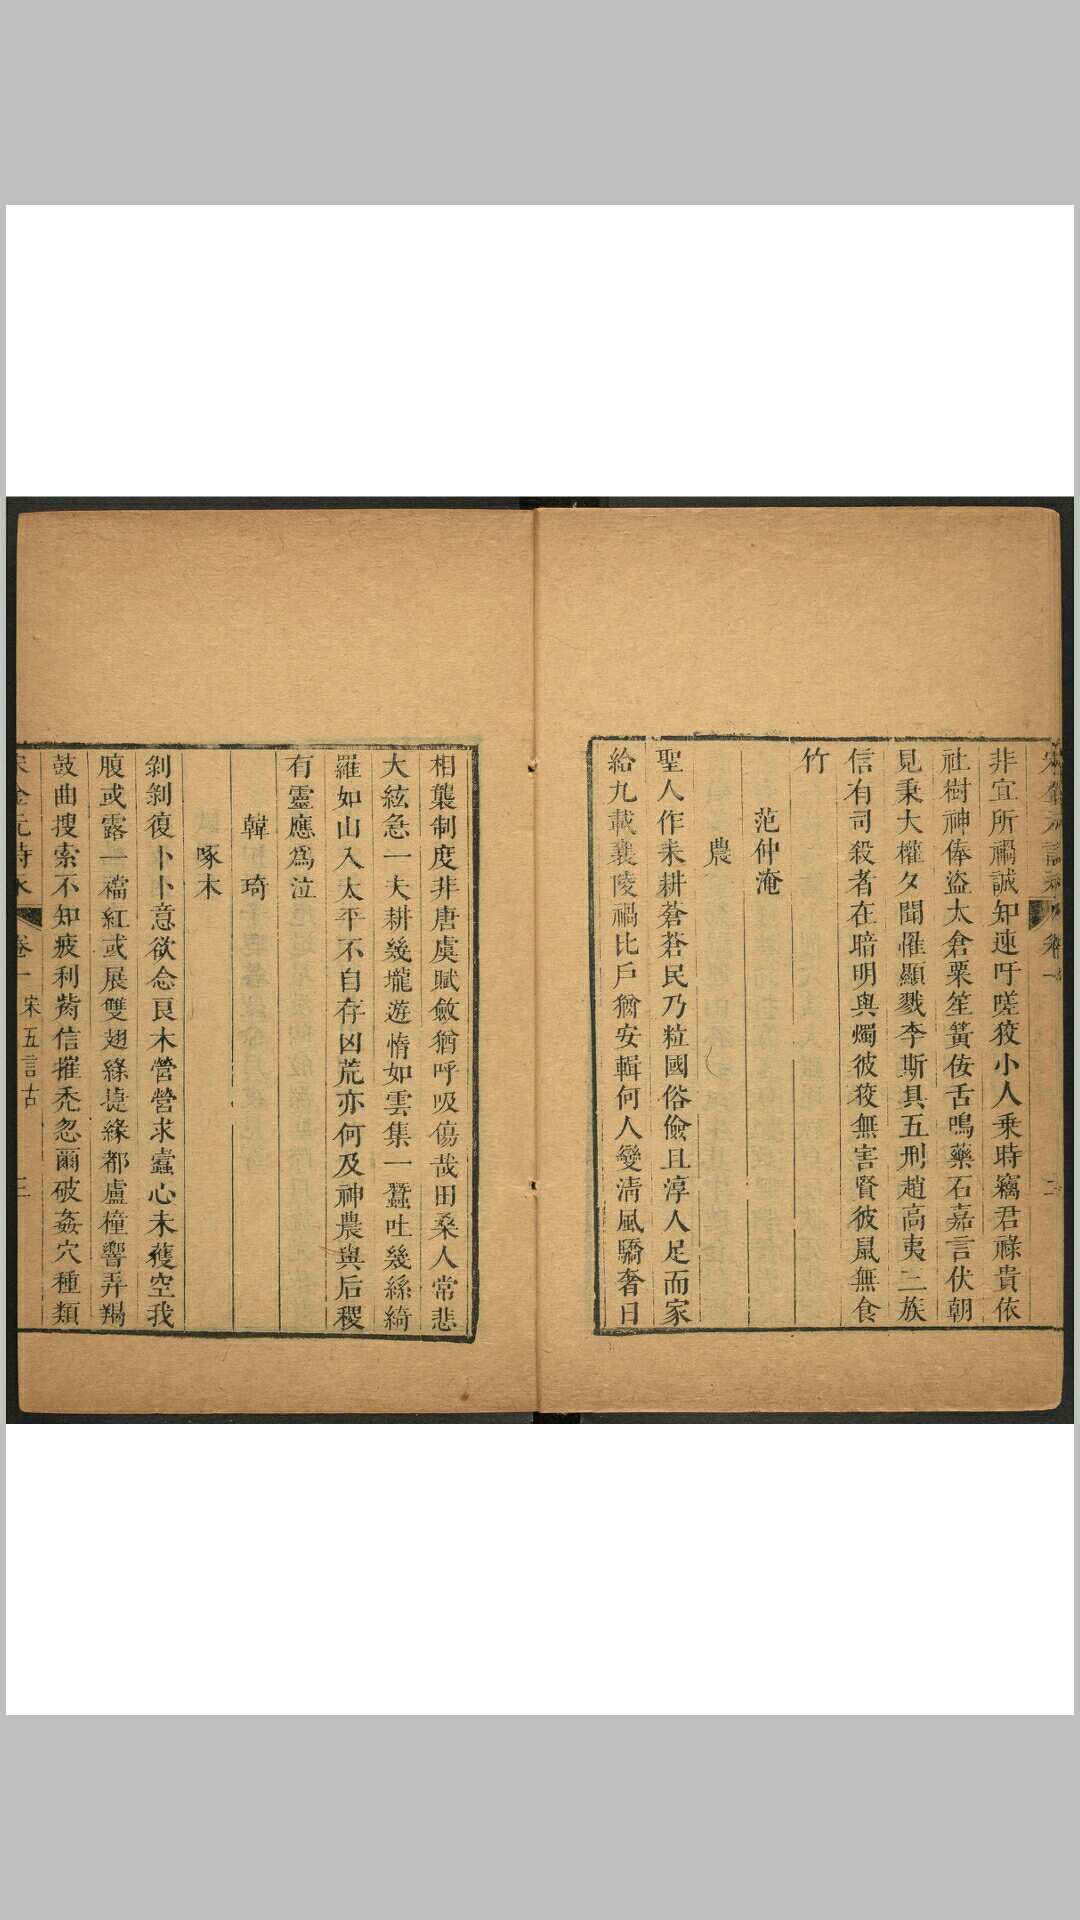 非宜所禍誠知速吁嗟狡小人乗時竊君祿貴依
社樹神俸盜太倉粟笙簧佞舌鳴藥石嘉言伏朝
見秉大權夕聞罹顯戮李斯具五刑趙高夷三族
信有司殺者在暗明與燭彼狡無害賢彼鼠無食
竹
范仲淹
農
聖人作耒耕蒼蒼民乃粒國俗儉且淳人足而家
給九載襄陵禍比戶猶安輯何人變清風驕奢日
相襲制度非唐虞賦斂猶呼吸傷哉田桑人常悲
大絃急一夫耕幾壠遊惰如雲集一蠶吐幾絲綺
羅如山入太平不自存凶荒亦何及神農與后稷
有靈應爲泣
韓琦
啄木
剝剝復卜卜意欲念良木營營求蠹心未獲空我
腹或露一襠紅或展雙翅綠捷緣都盧橦響弄羯
鼓曲搜索不知疲利觜信摧禿忽爾破姦穴種類
卷一 宋五言古 三